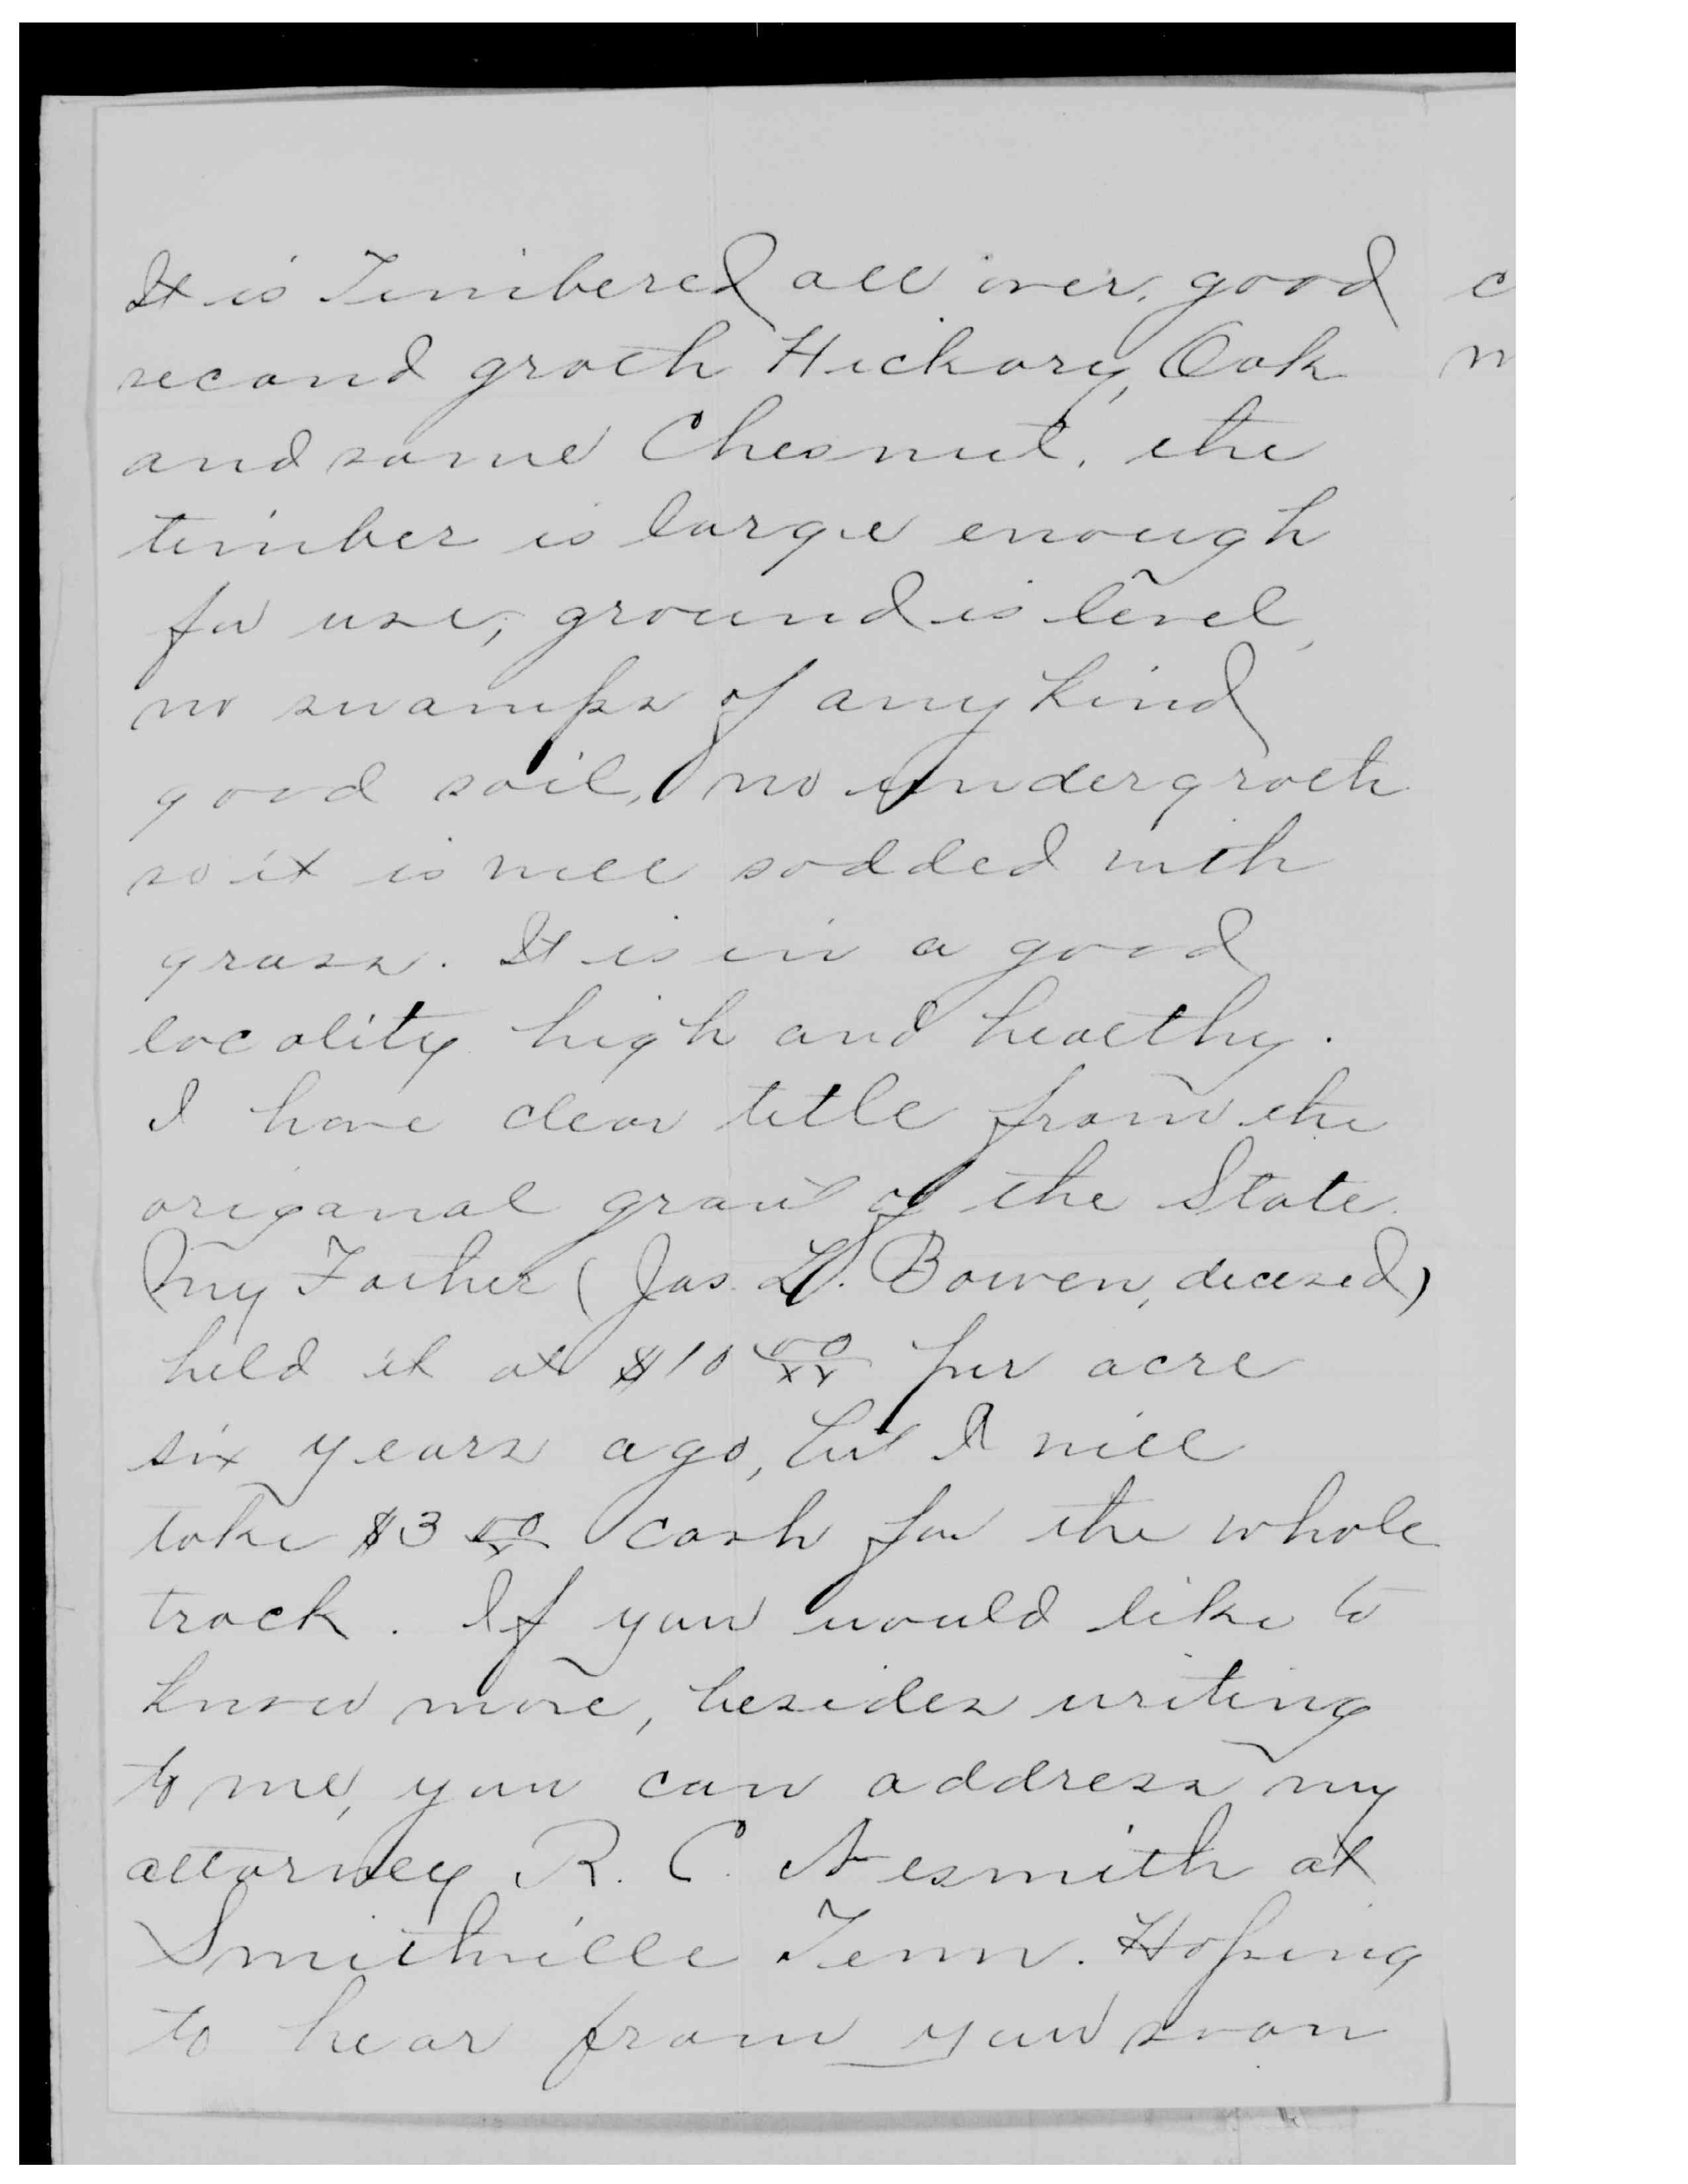 It is Timbered all over, good
second groth Hickory, Oak
and some Chesnut, the
timber is large enough
for use, ground is level,
no swamps of any kind
good soil, no undergroth
so it is well sodded with
grass. It is in a good
locality high and healthy.
I have clear title from the
origanal grant of the State.
My Father (Jas. D. Bowen, deceased)
held it at $10 00/xx per acre
six years ago, but I will
take $3 00/x cash for the whole
track. If you would like to
know more, besides writing
to me, you can address my
attorney R. C. Nesmith at
Smithville Tenn. Hoping
to hear from you soon